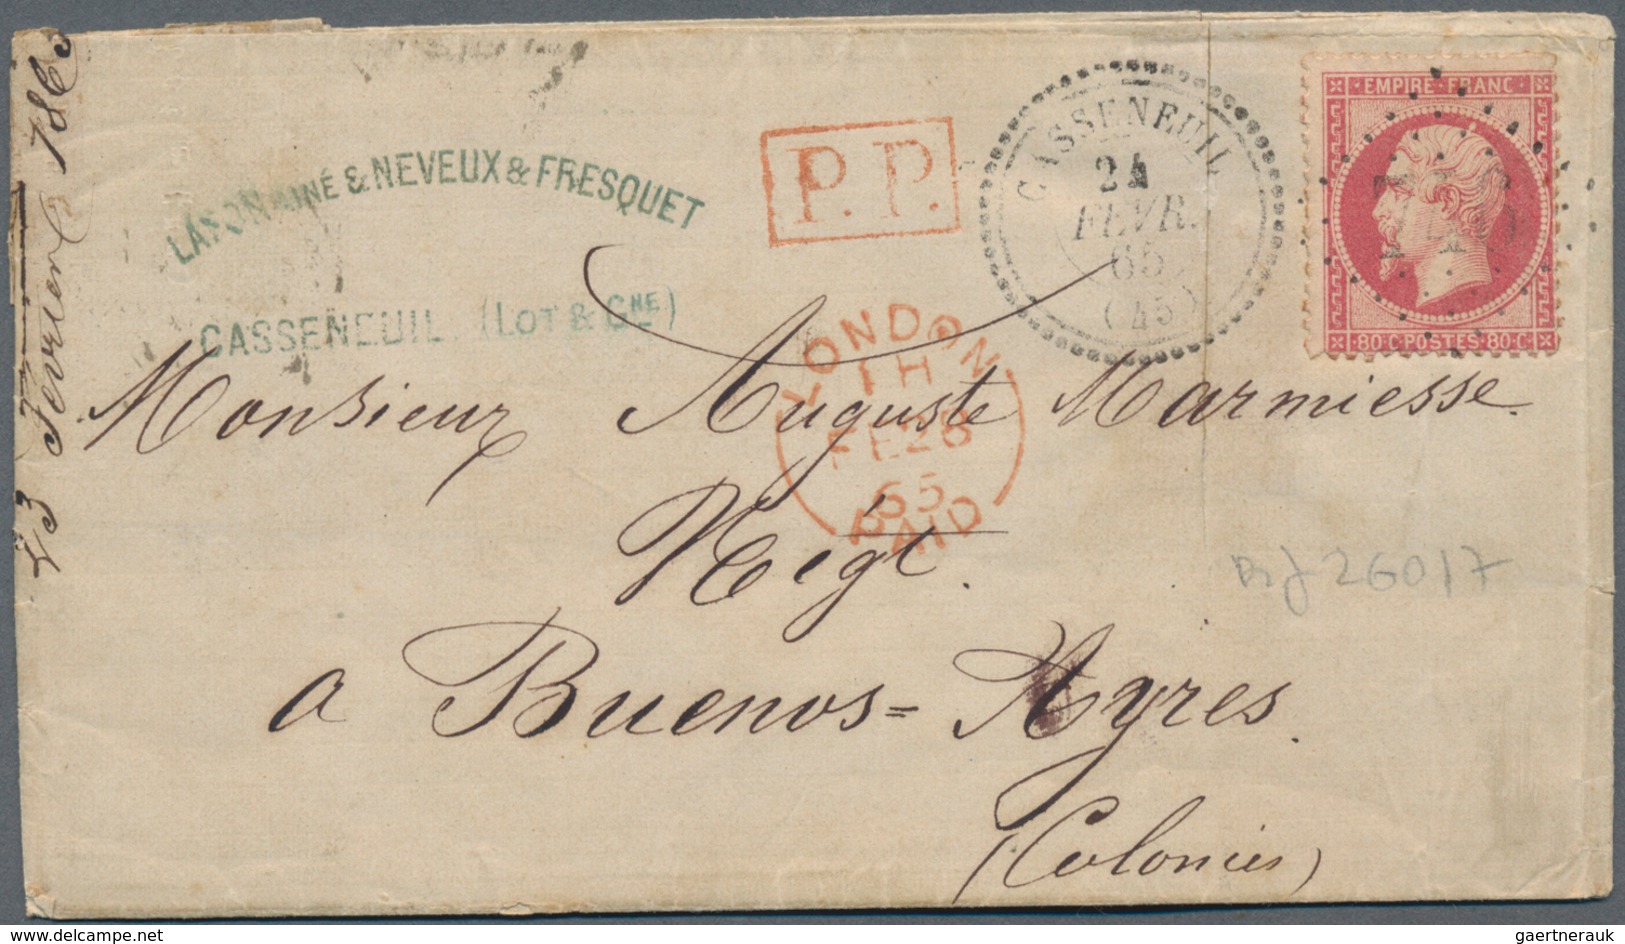 AINÉ & NEVEUX & FRESQUET
CASSENEUIL (LOT & GNE)
P.P.
CASSENEUIL
24
FEVR.
65
(45)
EMPIRE · FRANC
80·C·POSTES·80·C
LONDON
1H
FE 28
65
PAID
23 Fevrier
Monsieur Auguste Marmiesse
Négt.
a Buenos=Ayres.
(Colonies)
26017
delcampe.net
gaertnerauk